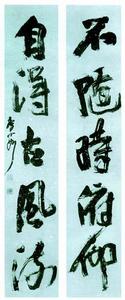 不随時俯仰
自得古風流